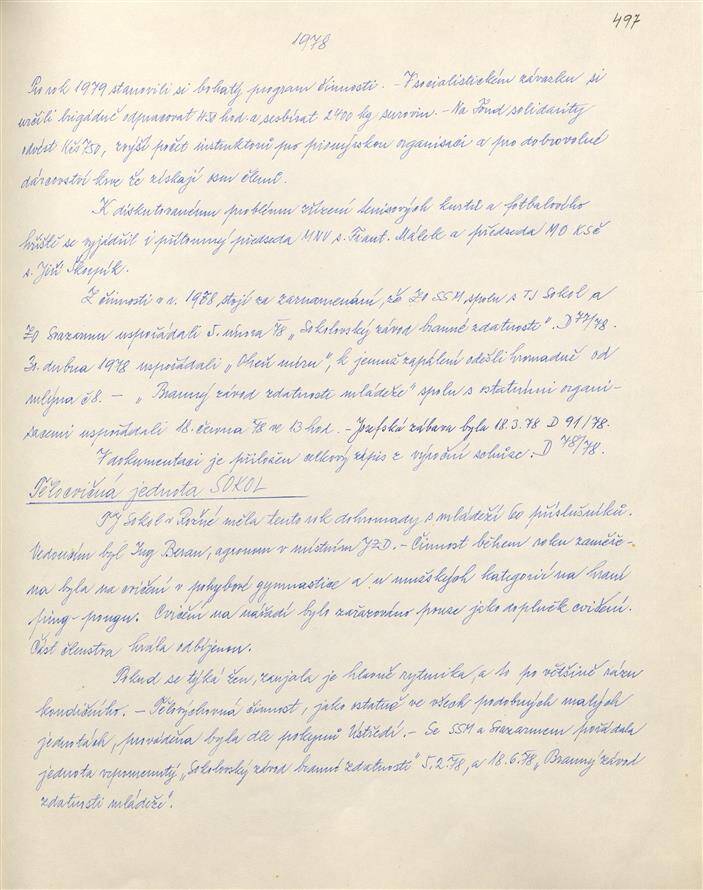 497
1978
Pro rok 1979 stanovili si bohatý program činnosti. - V socialistickém závazku si
určili brigádně odpracovat 450 hod a sesbírat 2400 kg surovin. - Na Fond solidarity
odvést Kčs 750, zvýší počet instruktorů pro pionýrskou organisaci a pro dobrovolné
dárcovství krve že získají osm členů.
K diskutovanému problému zřízení tenisových kurtů a fotbalového
hřiště se vyjádřil i přítomný předseda MNV s. Frant. Málek a předseda MO KSČ
s. Jiří Skopík.
Z činnosti v r. 1978 stojí za zaznamenání, že ZO SSM spolu s TJ Sokol a
ZO Svazarmu uspořádali 5. února 78 „Sokolovský závod branné zdatnosti". D 77/78.
30. dubna 1978 uspořádali „Oheň míru", k jemuž zapálení odešli hromadně od
mlýna č 8. - „Branný závod zdatnosti mládeže" spolu s ostatními organi-
sacemi uspořádali 18. června 78 ve 13 hod. - Josefská zábava byla 18.3.78 D 91/78.
V dokumentaci je přiložen celkový zápis z výroční schůze. D 78/78.
Tělocvičná jednota SOKOL
TJ Sokol v Rožné měla tento rok dohromady s mládeží 60 příslušníků.
Vedoucím byl Ing Beran, agronom v místním JZD. - Činnost během roku zaměře-
na byla na cvičení v pohybové gymnastice a u mužských kategorií na hraní
ping-pongu. Cvičení na nářadí bylo zařazováno pouze jako doplněk cvičení.
Část členstva hrála odbíjenou.
Pokud se týká žen, zaujala je hlavně rytmika, a to po většině rázu
kondičního. - Tělovýchovná činnost, jako ostatně ve všech podobných malých
jednotách, prováděna byla dle pokynů Ústředí. - Se SSM a Svazarmem pořádala
jednota vzpomenutý „Sokolovský závod branné zdatnosti" 5.2.78, a 18.6.78 „Branný závod
zdatnosti mládeže".